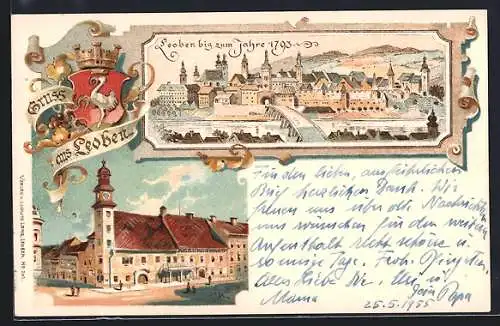 Leoben bis zum Jahre 1793
Gruss
aus Leoben.
Für den lieben, ausführlichen
Brief herzlichen Dank. Wir
freuen uns über alle Nachrichten
und wünschen für den weiteren
Aufenthalt recht schöne u.
sonnige Tage. Frohe Pfingsten.
Alles Liebe
Mama
Dein Papa
25.5.1955